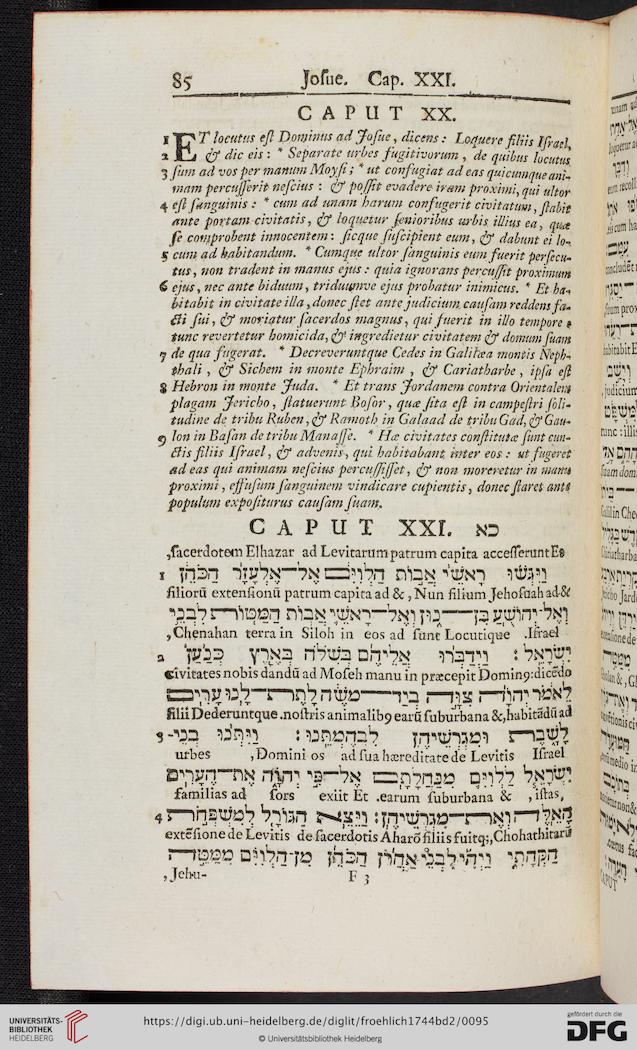 85 Joſue. Cap. XXI.
CAPUT XX.
1 ET locutus eſt Dominus ad Joſue, dicens: Loquere filiis Iſrael,
2 & dic eis: * Separate urbes fugitivorum, de quibus locutus
3 ſum ad vos per manum Moyſi; * ut confugiat ad eas quicumque ani-
mam percuſſerit neſcius: & poſſit evadere iram proximi, qui ultor
4 eſt ſanguinis: * cum ad unam harum confugerit civitatum, ſtabit
ante portam civitatis, & loquetur ſenioribus urbis illius ea, quæ
ſe comprobent innocentem: ſicque ſuſcipient eum, & dabunt ei lo-
5 cum ad habitandum. * Cumque ultor ſanguinis eum fuerit perſecu-
tus, non tradent in manus ejus: quia ignorans percuſſit proximum
6 ejus, nec ante biduum, triduumve ejus probatur inimicus. * Et ha-
bitabit in civitate illa, donec ſtet ante judicium cauſam reddens fa-
cti ſui, & moriatur ſacerdos magnus, qui fuerit in illo tempore:
tunc revertetur homicida, & ingredietur civitatem & domum ſuam
7 de qua fugerat. * Decreveruntque Cedes in Galilæa montis Neph-
thali, & Sichem in monte Ephraim, & Cariatharbe, ipſa eſt
8 Hebron in monte Juda. * Et trans Jordanem contra Orientalem
plagam Jericho, ſtatuerunt Boſor, quæ ſita eſt in campeſtri ſoli-
tudine de tribu Ruben, & Ramoth in Galaad de tribu Gad, & Gau-
9 lon in Baſan de tribu Manaſſe. * Hæ civitates conſtitutæ ſunt cun-
ctis filiis Iſrael, & advenis, qui habitabant inter eos: ut fugeret
ad eas qui animam neſcius percuſſiſſet, & non moreretur in manu
proximi, effuſum ſanguinem vindicare cupientis, donec ſtaret ante
populum expoſiturus cauſam ſuam.
CAPUT XXI. כא
,ſacerdotem Elhazar ad Levitarum patrum capita acceſſerunt Et
1 וַיִּגְּשׁוּ רָאשֵׁי אֲבוֹת הַלְוִיִּם אֶל־אֶלְעָזָר הַכֹּהֵן
filiorū extenſionū patrum capita ad &, Nun filium Jehoſuah ad &
וְאֶל־יְהוֹשֻׁעַ בִּן־נוּן וְאֶל־רָאשֵׁי אֲבוֹת הַמַּטּוֹת לִבְנֵי
,Chenahan terra in Siloh in eos ad ſunt Locutique .Iſrael
2 יִשְׂרָאֵל: וַיְדַבְּרוּ אֲלֵיהֶם בְּשִׁלֹה בְּאֶרֶץ כְּנַעַן
civitates nobis dandū ad Moſeh manu in præcepit Dominꝰ: dicēdo
לֵאמֹר יְהוָה צִוָּה בְיַד־מֹשֶׁה לָתֶת־לָנוּ עָרִים
filii Dederuntque .noſtris animalibꝰ earū ſuburbana &, habitādū ad
3 לָשָׁבֶת וּמִגְרְשֵׁיהֶן לִבְהֶמְתֵּנוּ: וַיִּתְּנוּ בְנֵי־
urbes ,Domini os ad ſua hæreditate de Levitis Iſrael
יִשְׂרָאֵל לַלְוִיִּם מִנַּחֲלָתָם אֶל־פִּי יְהוָה אֶת־הֶעָרִים
familias ad ſors exiit Et .earum ſuburbana & ,iſtas,
4 הָאֵלֶּה וְאֶת־מִגְרְשֵׁיהֶן: וַיֵּצֵא הַגּוֹרָל לְמִשְׁפְּחֹת
extēſione de Levitis de ſacerdotis Aharō filiis fuitq;, Chohathitarū
הַקְּהָתִי וַיְהִי לִבְנֵי אַהֲרֹן הַכֹּהֵן מִן־הַלְוִיִּם מִמַּטֵּה
,Jehu- F 3
UNIVERSITÄTS-
BIBLIOTHEK
HEIDELBERG
https://digi.ub.uni-heidelberg.de/diglit/froehlich1744bd2/0095
© Universitätsbibliothek Heidelberg
gefördert durch die
DFG